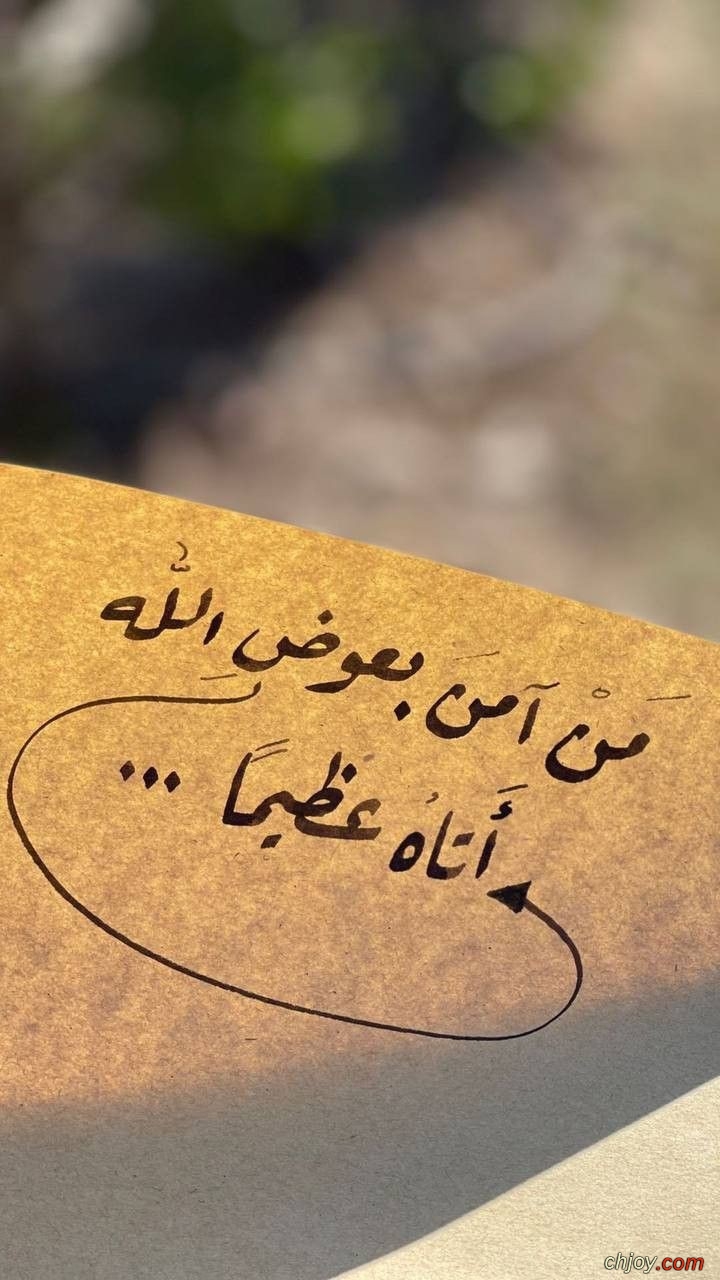 مَنْ آمنَ بعوضِ الله
أَتاهُ عظيمًا ...
chjoy.com